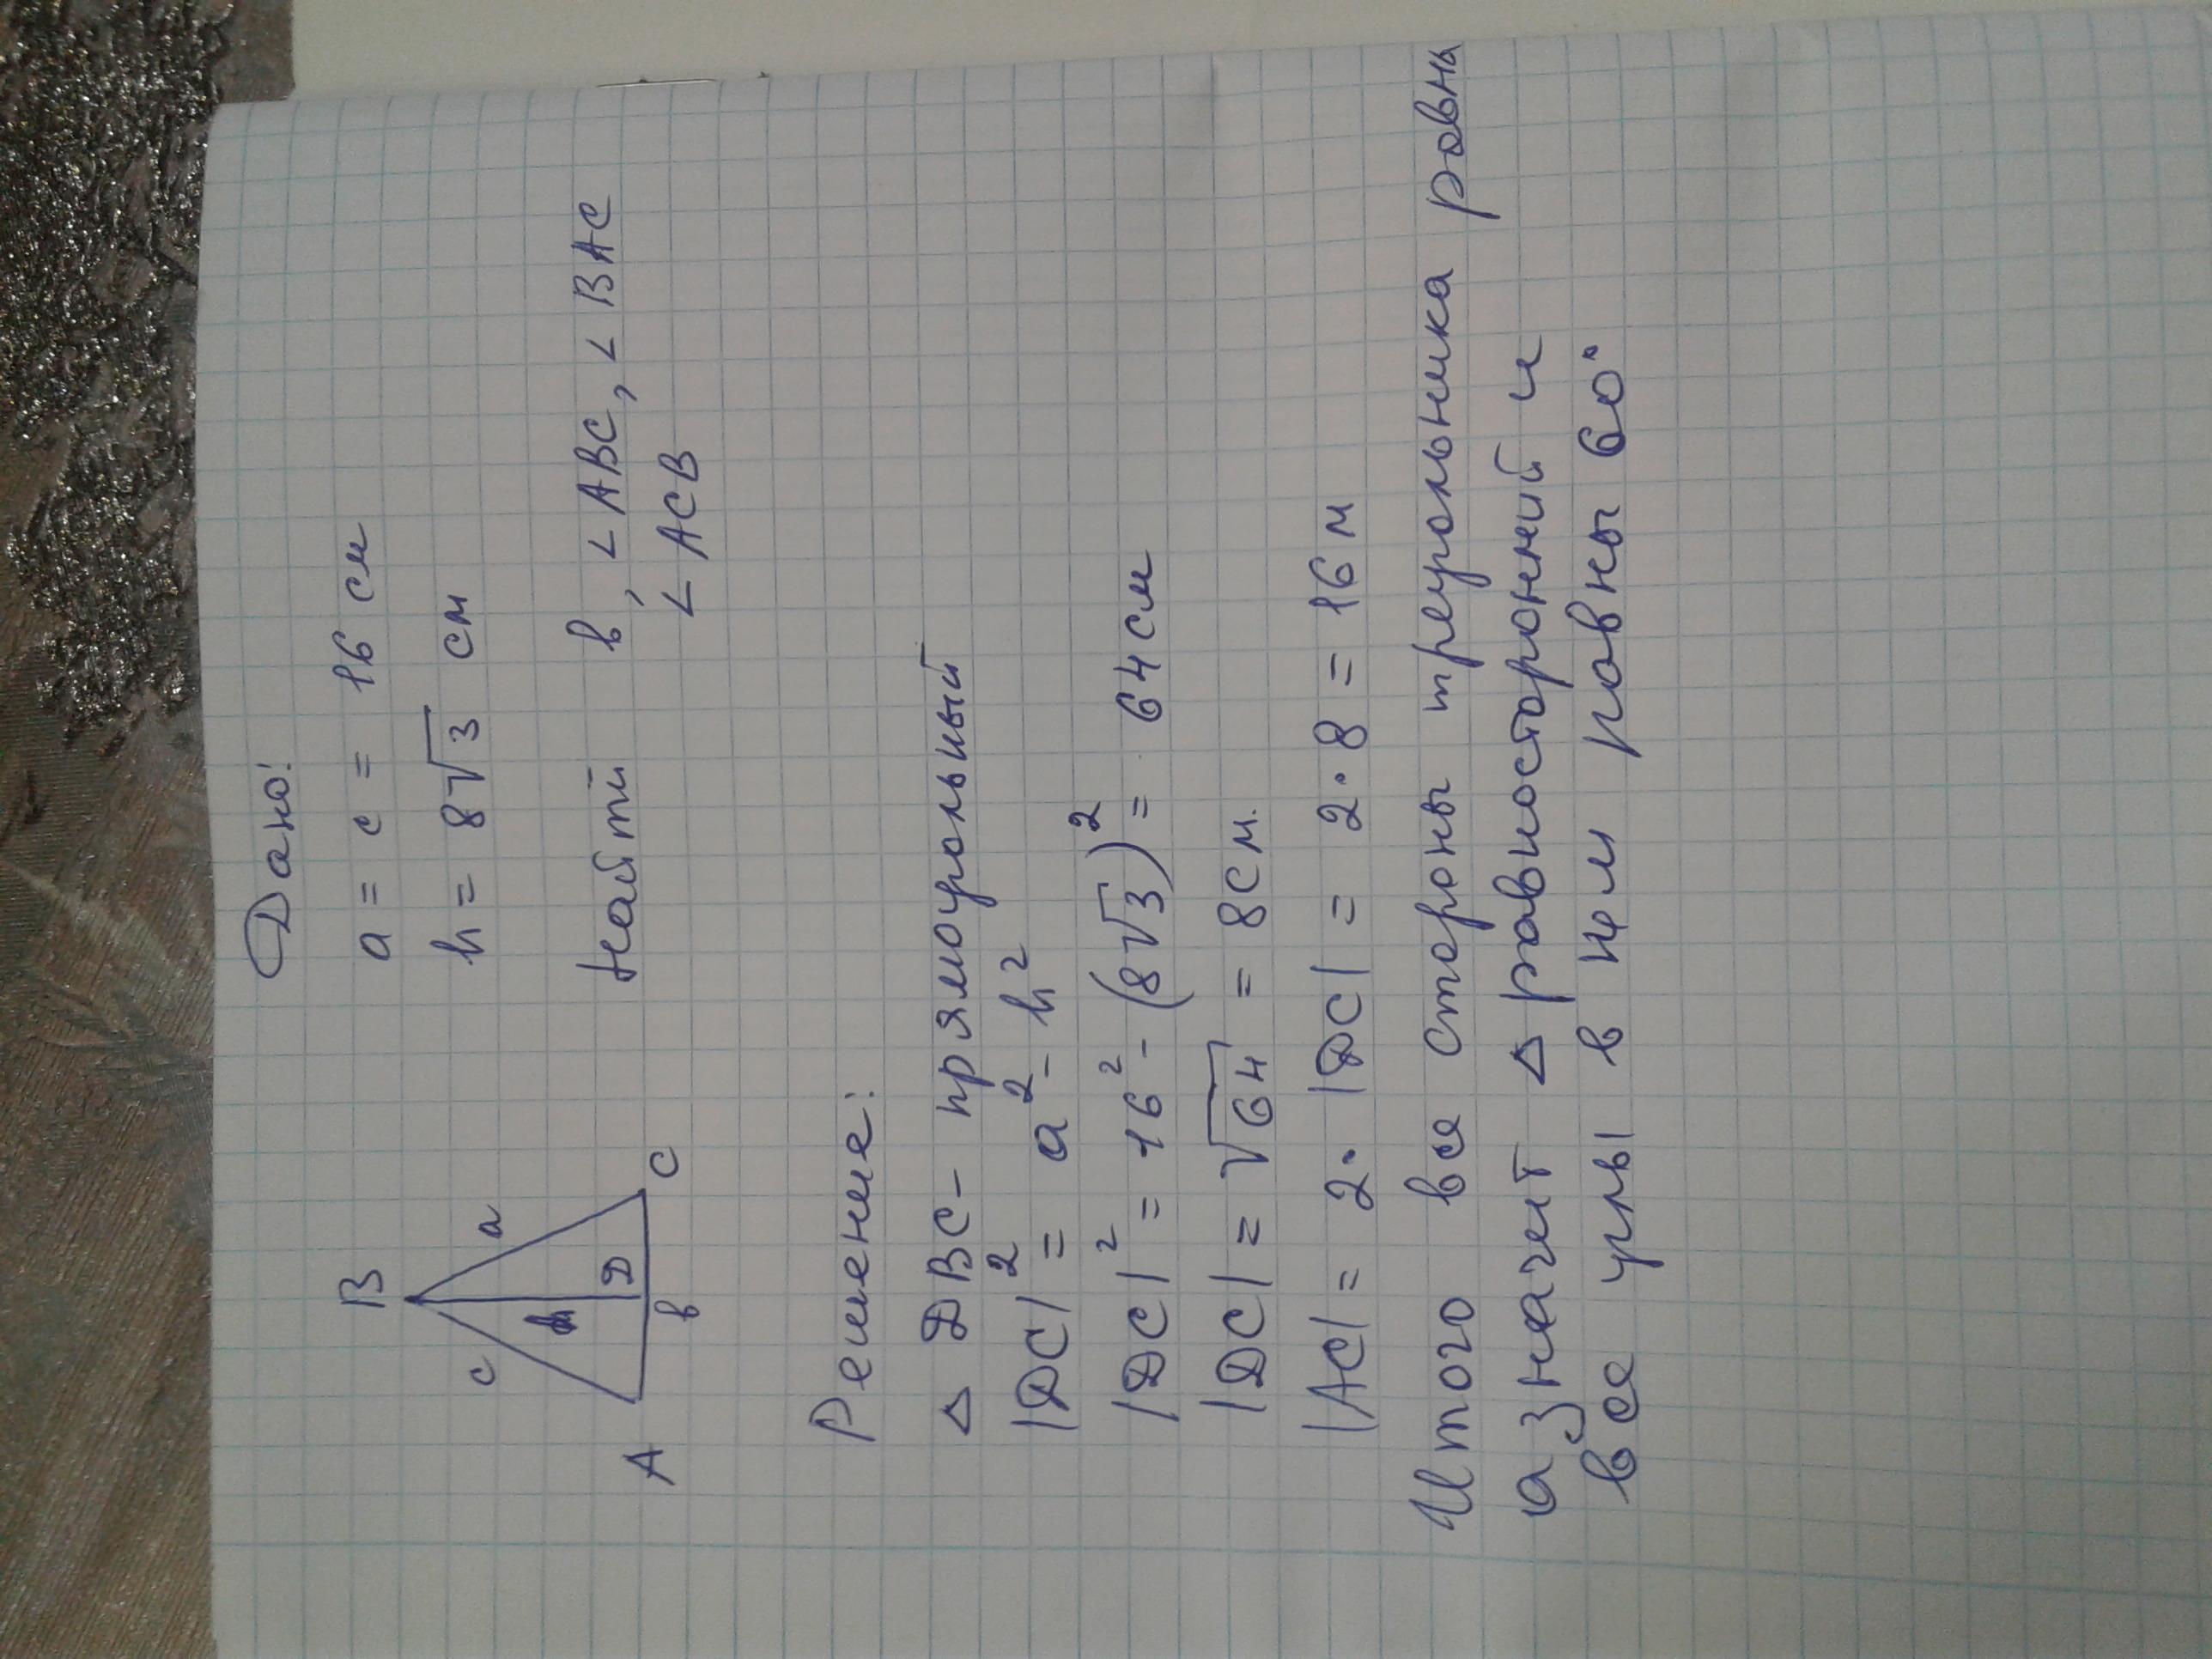 Дано:
a = c = 16 см
h = 8√3 см
Найти b, ∠ABC, ∠BAC
∠ACB
B
c
a
h
D
A
b
C
Решение:
Δ DBC - прямоугольный
|DC|² = a² - h²
|DC|² = 16² - (8√3)² = 64 см
|DC| = √64 = 8 см.
|AC| = 2 · |DC| = 2 · 8 = 16 м
Итого все стороны треугольника равны
а значит Δ равносторонний и
все углы в нём равны 60°